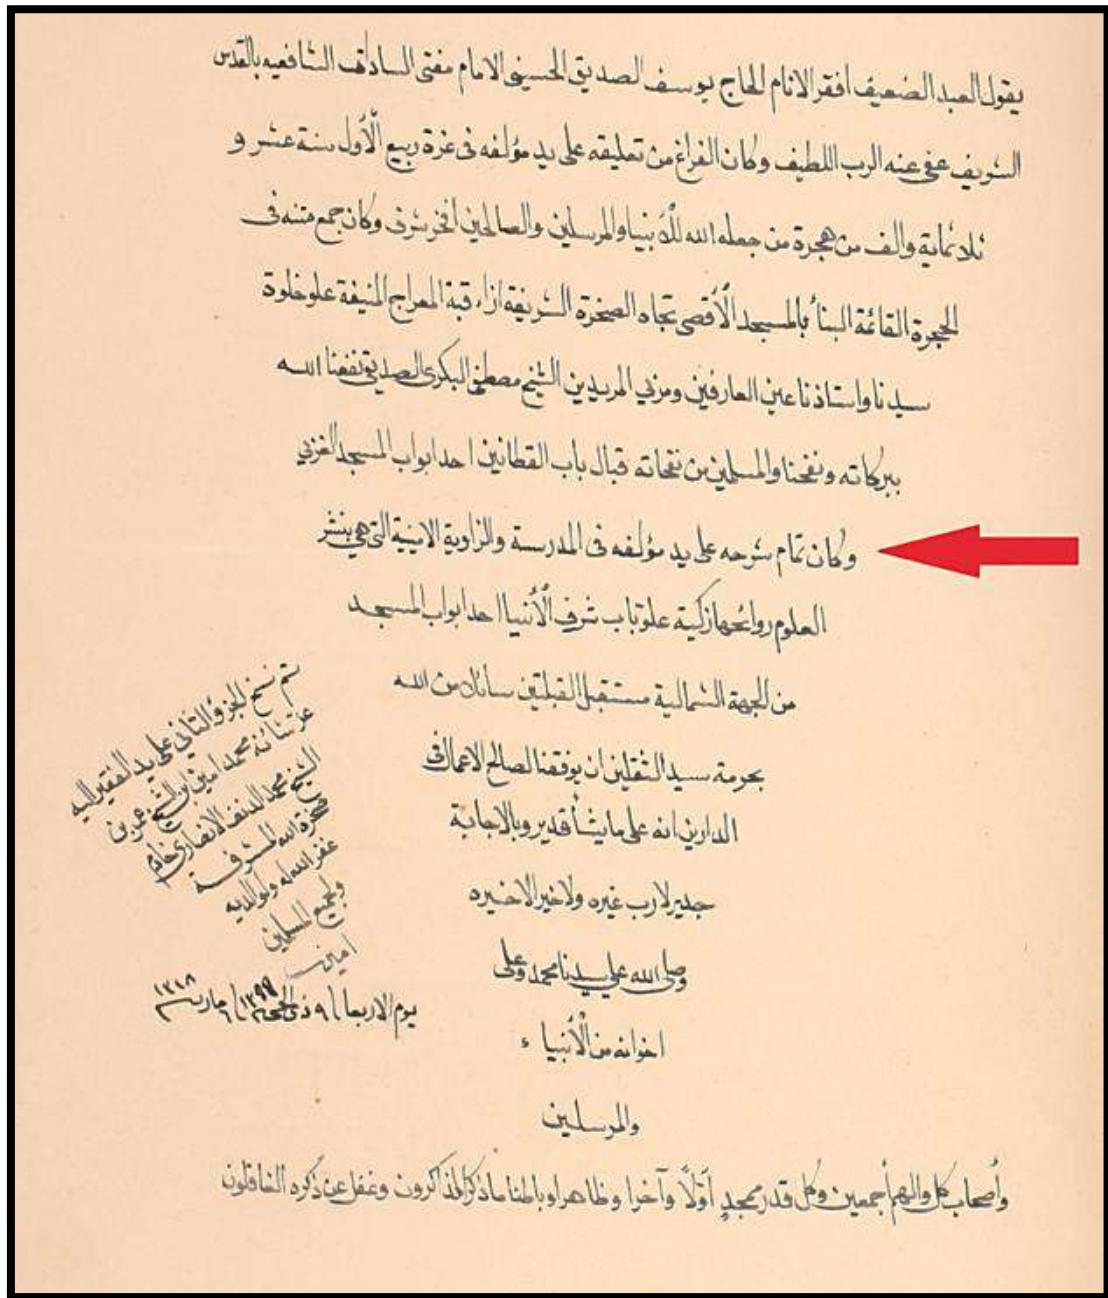 يقول العبد الضعيف أفقر الانام الحاج يوسف الصديق الحسيني الامام مفتى السادة الشافعيه بالقدس
الشريف عفى عنه الرب اللطيف وكان الفراغ من تعليقه على يد مؤلفه فى غرة ربيع الأول سنة عشر و
ثلاثماية والف من هجرة من جعله الله للأنبيا والمرسلين والصالحين افخر شرف وكان جمع متنه فى
الحجرة القائمة البنأ بالمسجد الأقصى تجاه الصخرة الشريفة ازاء قبة المعراج المنيفة علو خلوة
سيدنا واستاذنا عين العارفين ومربي المريدين الشيخ مصطفى البكرى الصديقى نفعنا الله
ببركاته ونفحنا والمسلمين من نفحاته قبال باب القطانين احد ابواب المسجد الغربي
وكان تمام شرحه على يد مؤلفه فى المدرسة والزاوية الامينية التى هي بنشر
العلوم روائحها زكية علو باب شرف الأنبيا احد ابواب المسجد
من الجهة الشمالية مستقبل القبلتين سائلا من الله
بحرمة سيد الثقلين ان يوفقنا لصالح الاعمال فى
الدارين انه على ما يشأ قدير وبالاجابة
جدير لارب غيره ولاخير الاخيره
وصلى الله على سيدنا محمد وعلى
اخوانه من الأنبياء
والمرسلين
وأصحاب كل والهم أجمعين وكل قدر ممجد أولًا وآخرا وظاهرا وباطنا ماذكره الذاكرون وغفل عن ذكره الغافلون
تم نسخ الجزؤ الثاني على يد الفقير اليه
عز شانه محمد امين ابن الشيخ عمر بن
الشيخ محمد الدنف الانصاري خادم
صخرة الله المشرفة
غفر الله له ولوالديه
ولجميع المسلمين
امين
يوم الاربعا ٩ ذى الحجة ١٦ مارت